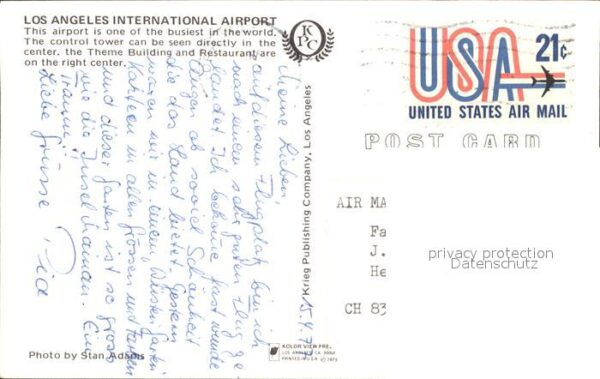 LOS ANGELES INTERNATIONAL AIRPORT
This airport is one of the busiest in the world.
The control tower can be seen directly in the
center, the Theme Building and Restaurant are
on the right center.
KPC
USA 21¢
UNITED STATES AIR MAIL
POST CARD
Krieg Publishing Company, Los Angeles
15.4.7
Meine Lieben,
auf diesem Flugplatz bin ich
nach einem sehr guten Flug ge-
landet. Ich bekomme fast wunde
Augen ob soviel Schönheit
die das Land bietet. Gestern
waren wir in einem Wüstengarten
Kakteen in allen Grössen und Farben
und dieser Garten ist so gross
wie die Insel Mainau. Ein
Traum!
Liebe Grüsse, Pia
AIR MA
Fa
J.
He
CH 83
privacy protection
Datenschutz
Photo by Stan Adams
KOLOR VIEW PRE.
LOS ANGELES CA.
PRINTED IN U.S.A.